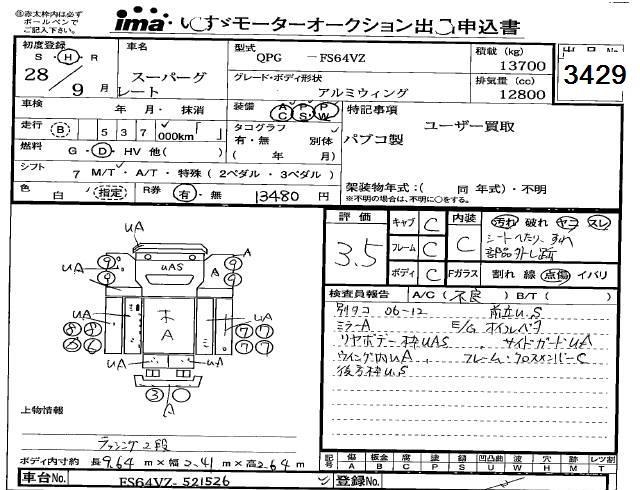 ⑧赤太枠内は必ず
ボールペンで
ご記入下さい。
ima いすゞモーターオークション出品申込書
初度登録
S・H・R
28 / 9 月
車名
スーパーグレート
型式
QPG - FS64VZ
グレード・ボディ形状
アルミウィング
積載 (kg)
13700
排気量 (cc)
12800
出品No.
3429
車検 年 月・ 抹消
装備
A/C P/S P/W
走行 B 537,000km「 」
タコグラフ
有・無 別体
( 年 月)
燃料 G・D・HV 他( )
シフト 7 M/T・A/T・特殊 (2ペダル・3ペダル)
色 白 指定
R券 有・無 13480 円
特記事項
ユーザー買取
パブコ製
架装物年式:( 同 年式)・不明
※不明の場合は、不明に○をする。
評価
3.5
キャブ C
フレーム C
ボディ C
内装 C
汚れ 破れ ヤニ スレ
シートへたり、すれ
部品外し跡
Fガラス 割れ 線 点傷 イバリ
検査員報告 A/C ( 不良 ) B/T ( )
別タコ 06-12 前立U.S
ミラーA E/G オイルベタ
リヤボデー枠UAS サイドガードUA
ウイング内UA、 フレーム・クロスメンバーC
後方枠U.S
UA
UA
UAS
A
A
UA
木
A
UA
UA
UA
A
上物情報
ラッシング2段
ボディ内寸約 長9.64 m×幅2.41 m×高2.64 m
記号
傷 板金 腐 塗 錆 凹凸曲 波 穴 跡 レツ割
A B C P S U W H M T
車台No. FS64VZ-521526
登録No.